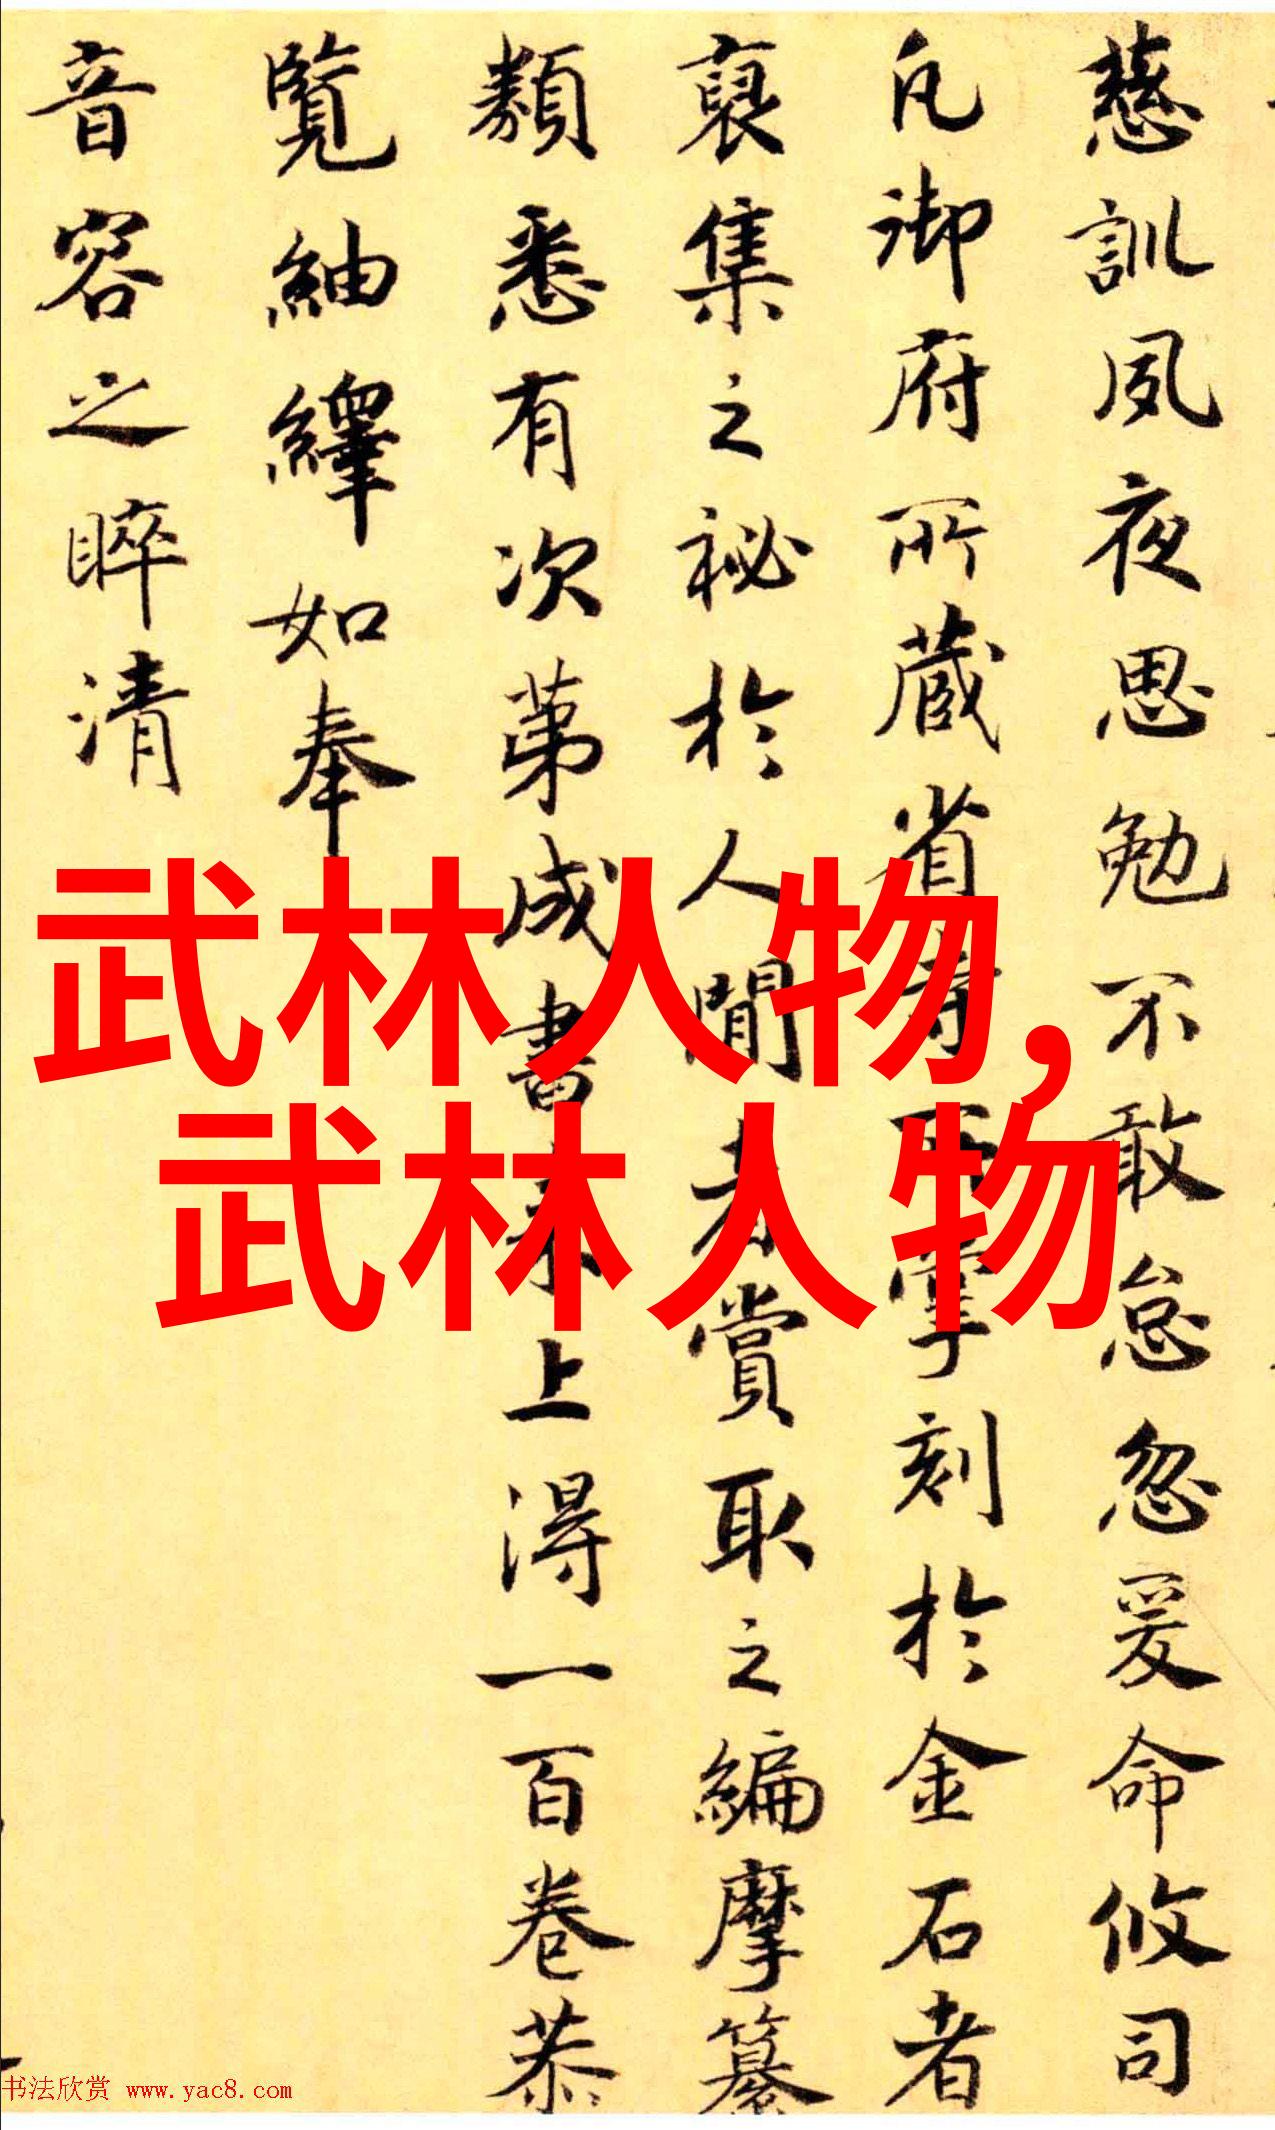 慈訓夙夜思勉不敢怠忽爰命攸司
凡御府所藏省寺所掌刻於金石者
裒集之祕於人間者賞取之編摩纂
類悉有次第成書來上得一百卷恭
覽紬繹如奉
音容之睟清
武林人物,
武林人物
书法欣赏 www.yac8.com